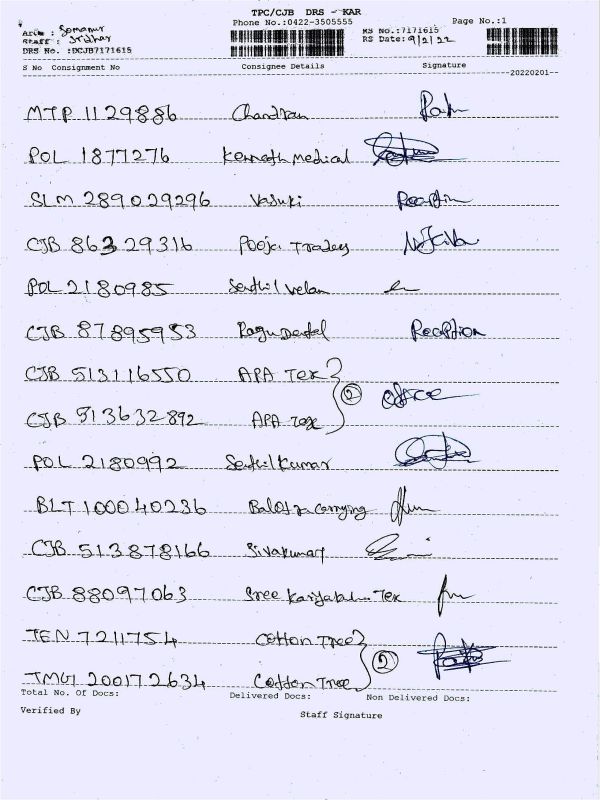 TPC/CJB DRS - KAR
Phone No.:0422-3505555 Page No.:1
Area : Somanur MS No.:7171615
Staff : Sridhar RS Date: 9/2/22
DRS No. :DCJB7171615
S No Consignment No Consignee Details Signature
20220201
MTP 1129886 Chandran
POL 1877276 Kenneth Medical
SLM 289029296 Vasuki Reception
CJB 86329316 Pooja Traders
POL 2180985 Senthil Velan
CJB 87895953 Ragu Dental Reception
CJB 513116550 APA Tex
② office
CJB 513632892 APA Tex
POL 2180992 Senthil Kumar
BLT 100040236 Carrying
CJB 513878166 Sivakumar
CJB 88097063 Sree Tex
TEN 7211754 Cotton Tree
②
TMG 200172634 Cotton Tree
Total No. Of Docs: Delivered Docs: Non Delivered Docs:
Verified By Staff Signature